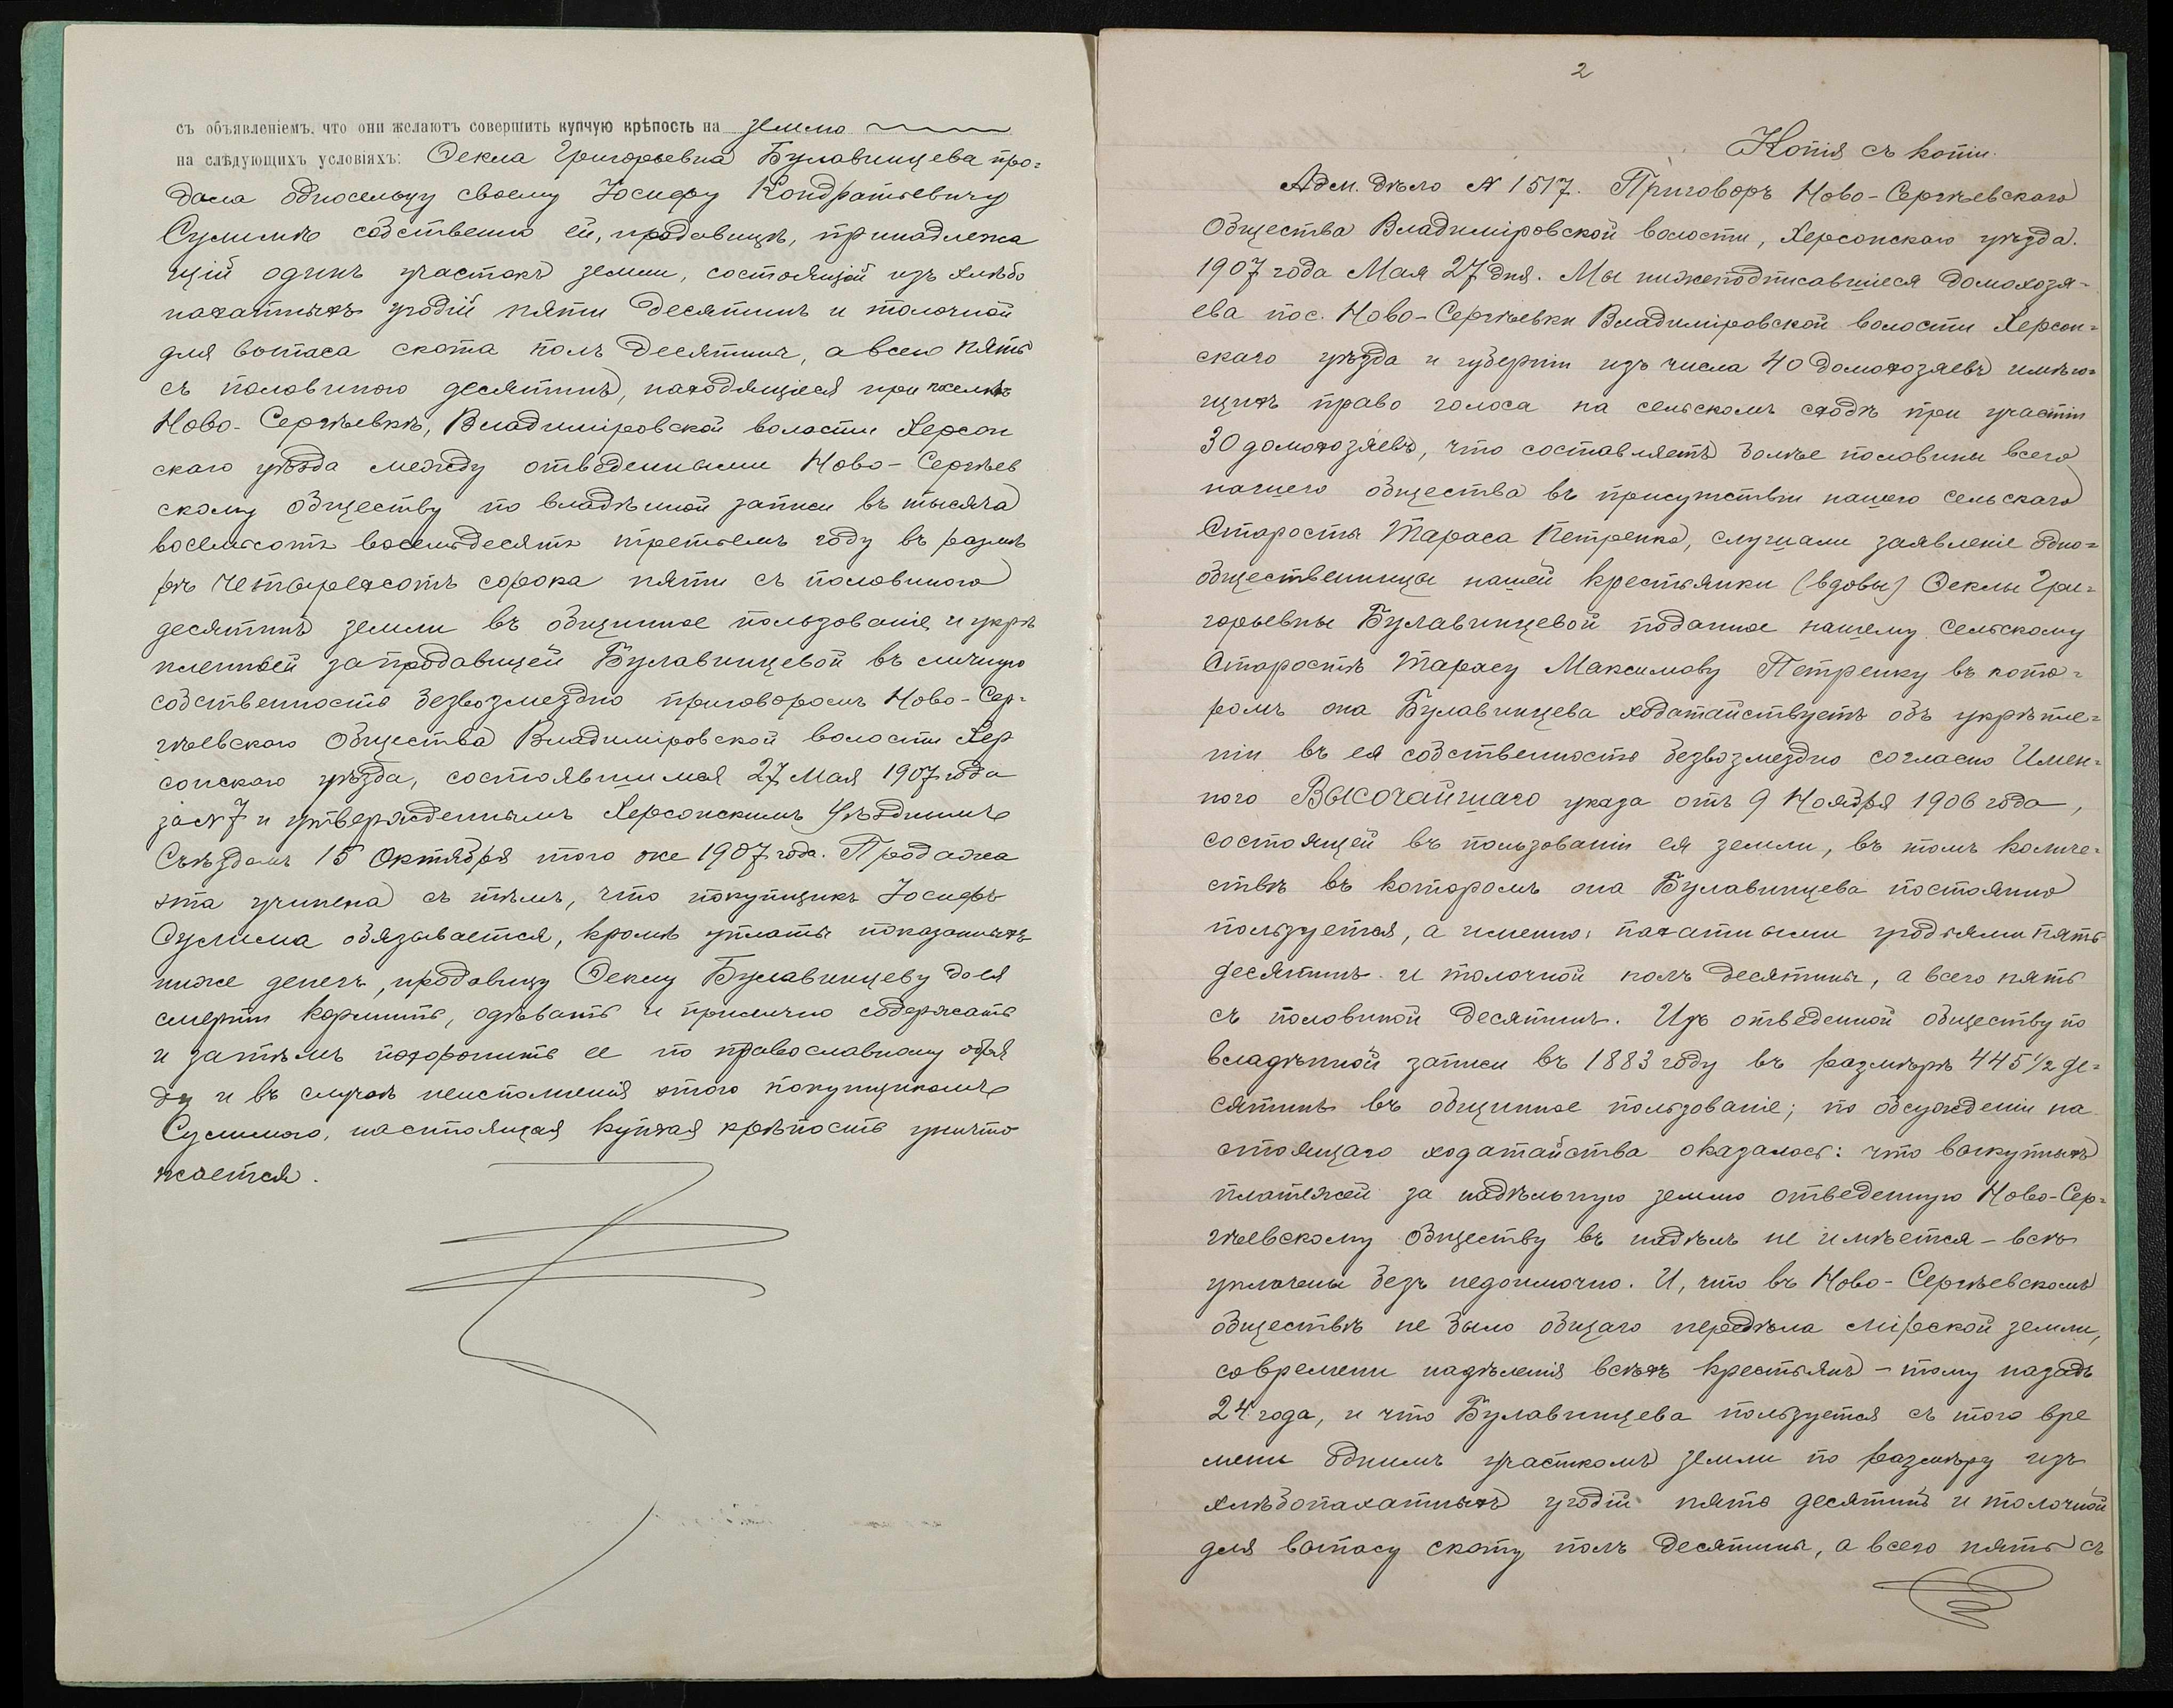 съ объявленіемъ, что они желаютъ совершить купчую крѣпость на землю
на слѣдующихъ условіяхъ: Ѳекла Григорьевна Булавинцева про=
дала односельцу своему Іосифу Кондратьевичу
Сулимѣ собственно ей, продавицѣ, принадлежа
щій одинъ участокъ земли, состоящій изъ хлѣбо
пахатныхъ угодій пяти десятинъ и толочной
для выпаса скота полъ десятины, а всего пять
съ половиною десятинъ, находящіеся при поселкѣ
Ново-Сергѣевкѣ, Владиміровской волости Херсон
скаго уѣзда между отведенными Ново-Сергѣев
скому обществу по владѣнной записи въ тысяча
восемьсотъ восемьдесятъ третьемъ году въ размѣ
рѣ четырехсотъ сорока пяти съ половиною
десятинъ земли въ общинное пользованіе и укрѣ
пленной за продавицей Булавинцевой въ личную
собственность безвозмездно приговоромъ Ново-Сер=
гѣевскаго Общества Владиміровской волости Хер
сонскаго уѣзда, состоявшимся 27 Мая 1907 года
за № 7 и утвержденнымъ Херсонскимъ Уѣзднымъ
Съѣздомъ 15 Октября того же 1907 года. Продажа
эта учинена съ тѣмъ, что покупщикъ Іосифъ
Сулима обязывается, кромѣ уплаты показанныхъ
ниже денегъ, продавицу Ѳеклу Булавинцеву до ея
смерти кормить, одѣвать и прилично содержать
и затѣмъ похоронить ее по православному обря
ду и въ случаѣ неисполненія этого покупщикомъ
Сулимою, настоящая купчая крѣпость уничто
жается.
2
Копія съ копіи.
Адм. дѣло № 1517. Приговоръ Ново-Сергѣевскаго
Общества Владиміровской волости, Херсонскаго уѣзда.
1907 года Мая 27 дня. Мы нижеподписавшіеся домохозя-
ева пос. Ново-Сергѣевки Владиміровской волости Херсон=
скаго уѣзда и губерніи изъ числа 40 домохозяевъ имѣю=
щихъ право голоса на сельскомъ сходѣ при участіи
30 домохозяевъ, что составляетъ болѣе половины всего
нашего общества въ присутствіи нашего сельскаго
Старосты Тараса Петренка, слушали заявленіе одно=
общественницы нашей крестьянки (вдовы) Ѳеклы Гри=
горьевны Булавинцевой поданное нашему сельскому
Старостѣ Тарасу Максимову Петренку въ кото=
ромъ она Булавинцева ходатайствуетъ объ укрѣпле=
ніи въ ея собственность безвозмездно согласно Имен=
ного ВЫСОЧАЙшаго указа отъ 9 Ноября 1906 года,
состоящей въ пользованіи ея земли, въ томъ количе=
ствѣ въ которомъ она Булавинцева постоянно
пользуется, а именно: пахатными угодіями пять
десятинъ и толочной полъ десятины, а всего пять
съ половиной десятинъ. Изъ отведенной обществу по
владѣнной записи въ 1883 году въ размѣрѣ 445 1/2 де=
сятинъ въ общинное пользованіе; по обсужденіи на
стоящаго ходатайства оказалось: что выкупныхъ
платежей за надѣльную землю отведенную Ново-Сер=
гѣевскому Обществу въ надѣлъ не имѣется - всѣ
уплочены безъ недоимочно. И, что въ Ново-Сергѣевскомъ
обществѣ не было общаго передѣла мірской земли,
современи надѣленія всѣхъ крестьянъ - тому назадъ
24 года, и что Булавинцева пользуется съ того вре
мени однимъ участкомъ земли по размѣру изъ
хлѣбопахатныхъ угодій пять десятинъ и толочной
для выпасу скоту полъ десятины, а всего пять съ